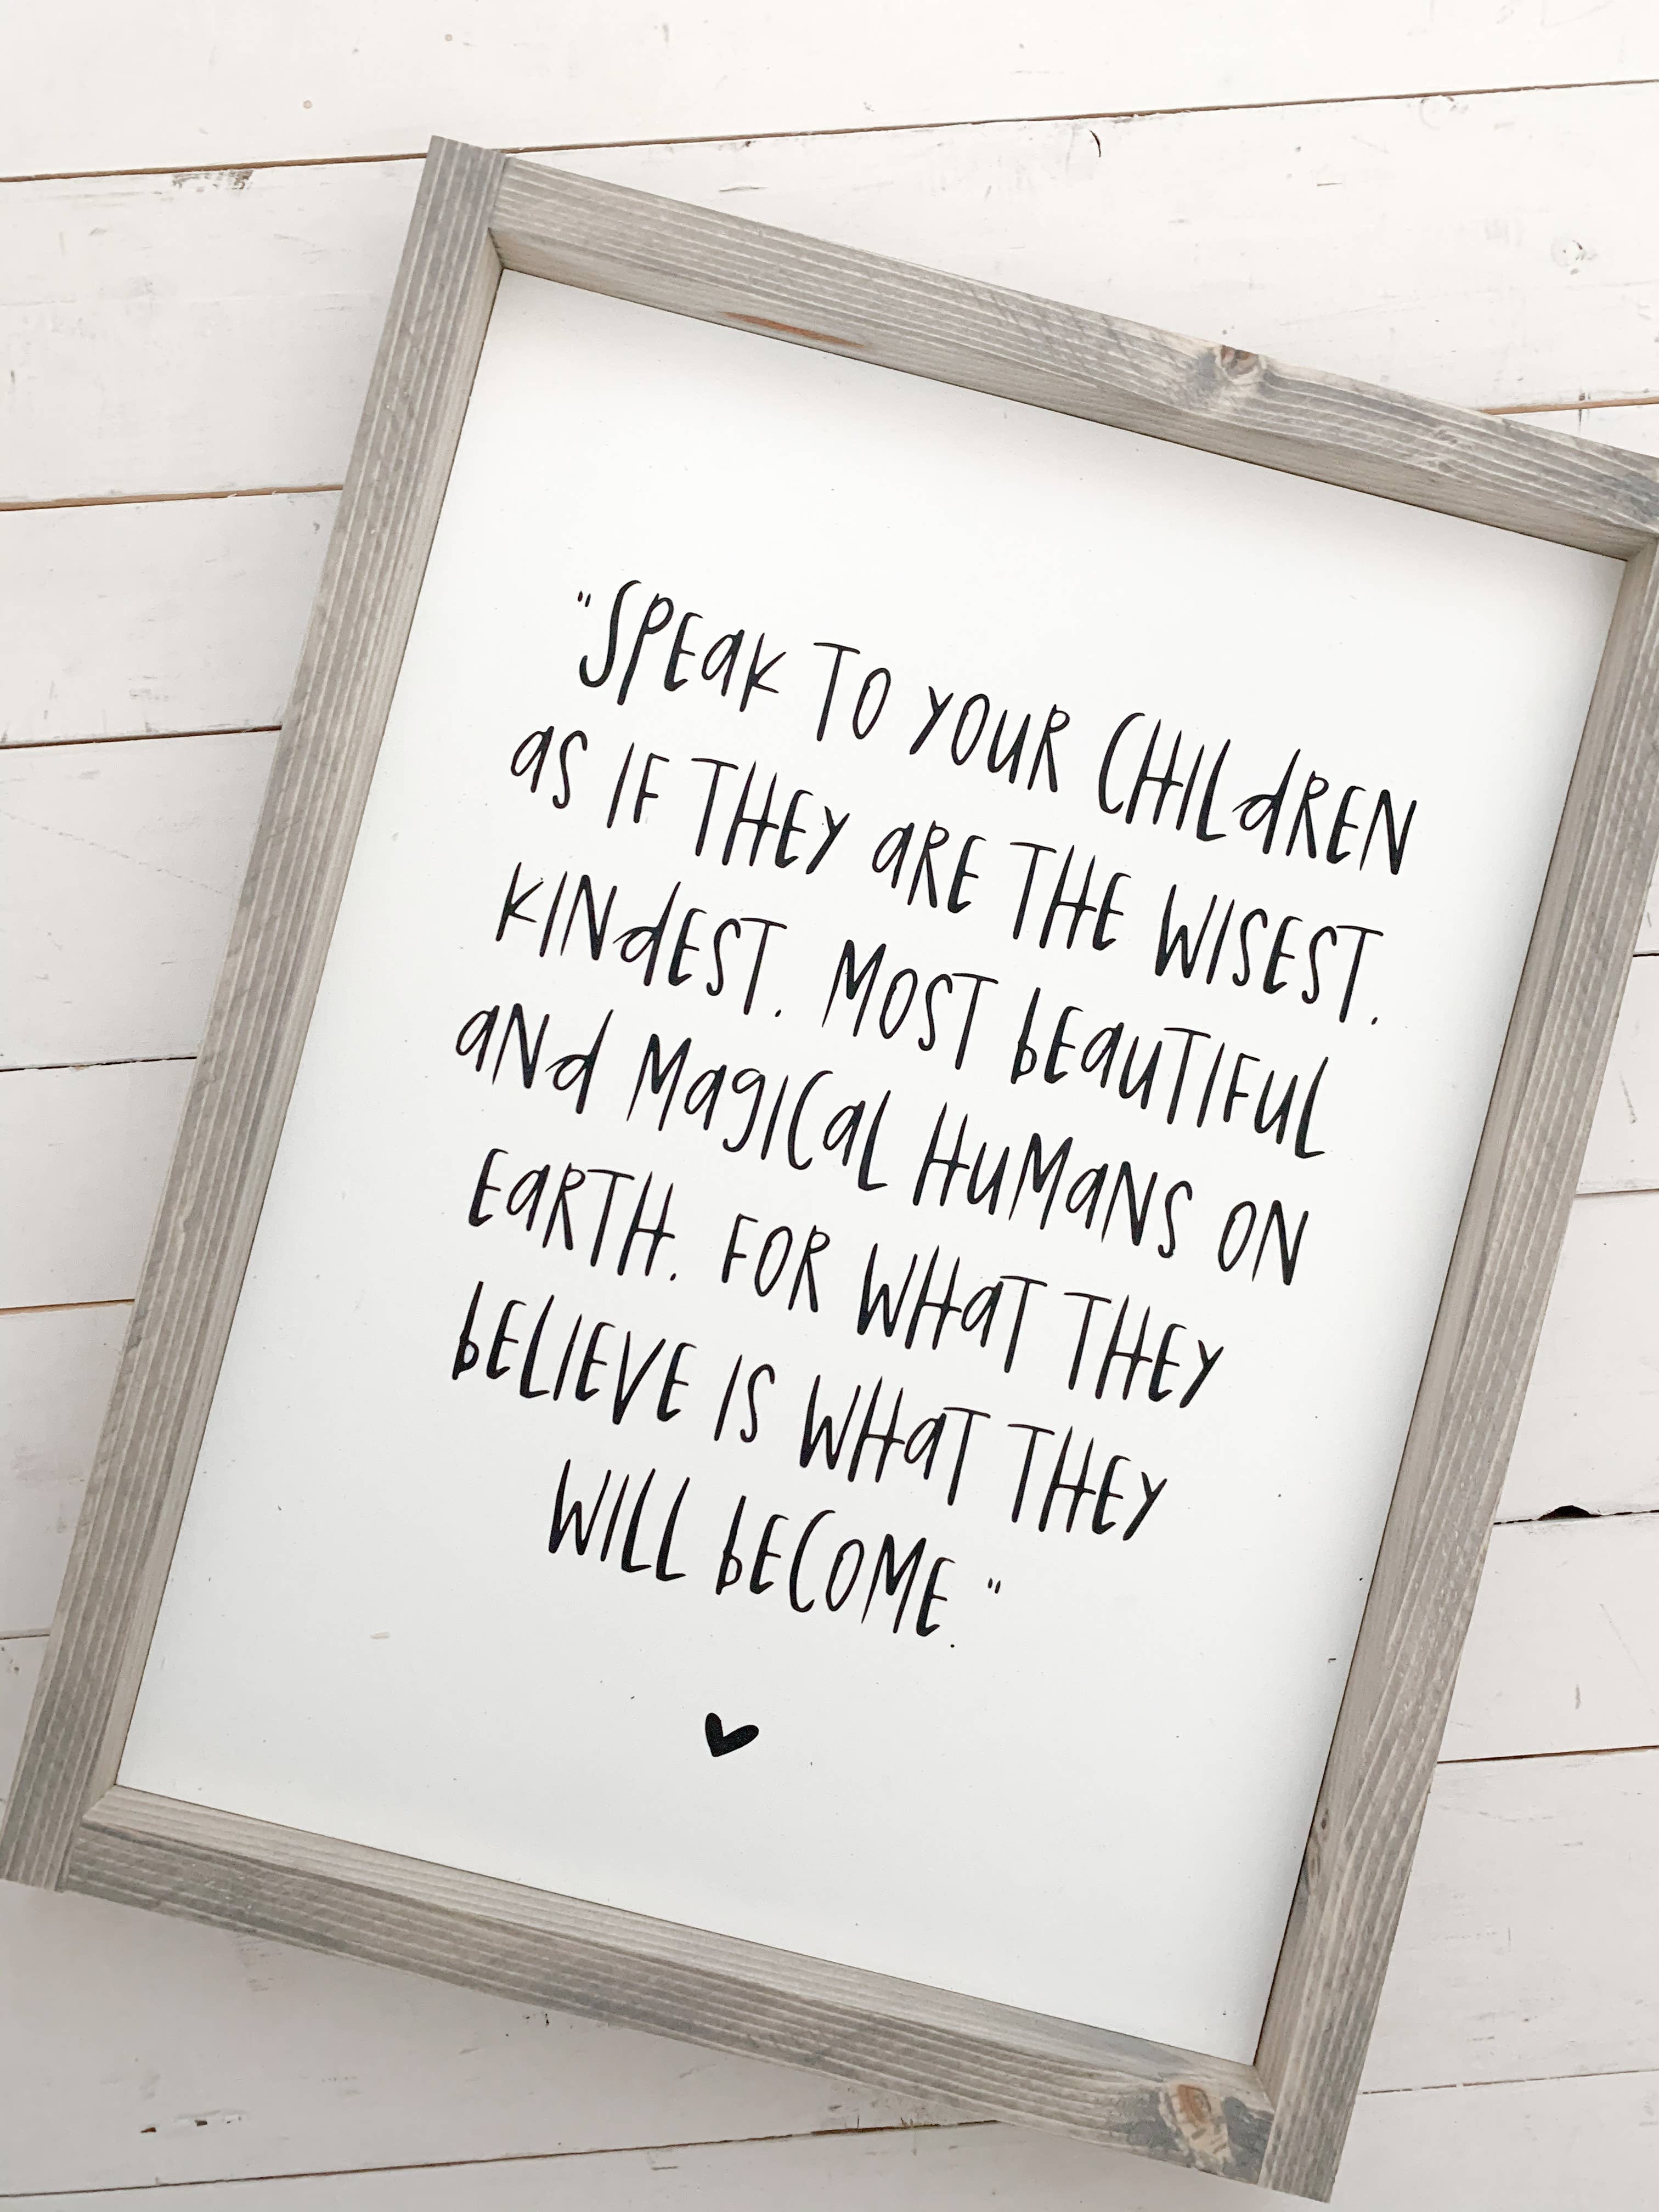 "SPEAK TO YOUR CHILDREN
AS IF THEY ARE THE WISEST.
KINDEST. MOST BEAUTIFUL
AND MAGICAL HUMANS ON
EARTH. FOR WHAT THEY
BELIEVE IS WHAT THEY
WILL BECOME."